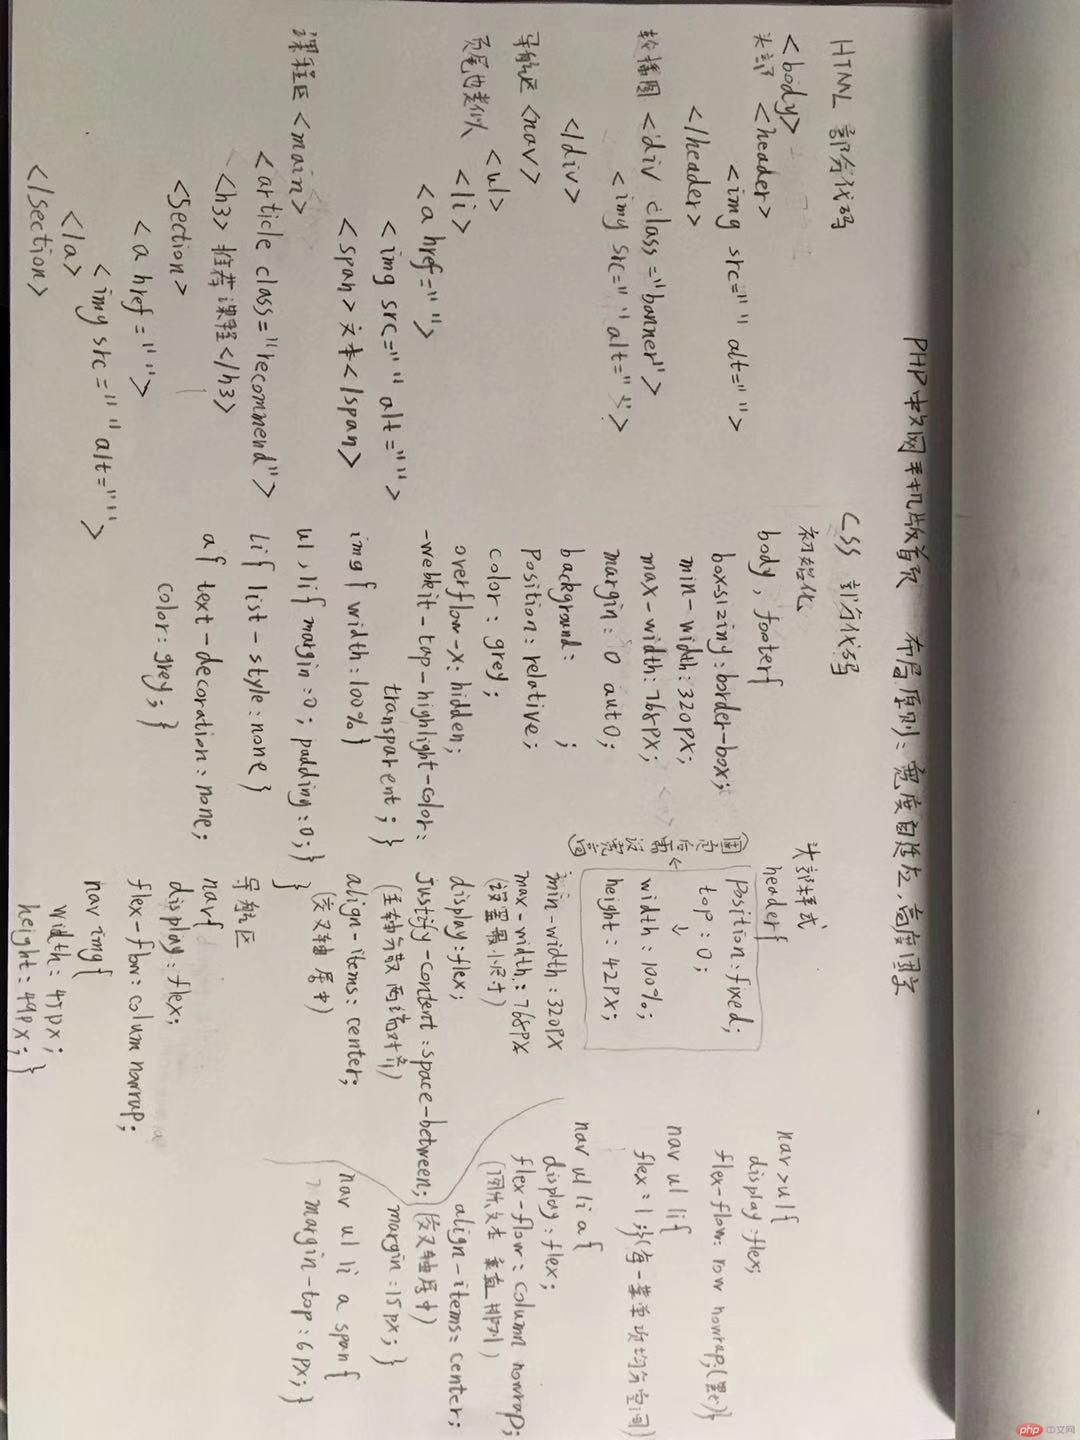 PHP中文网手机版首页 布局原则:宽度自适应,高度固定
HTML 部分代码
<body>
头部 <header>
<img src="" alt="">
</header>
轮播图 <div class="banner">
<img src="" alt="">
</div>
导航区 <nav>
页尾也类似 <ul>
<li>
<a href="">
<img src="" alt="">
<span>文本</span>
课程区 <main>
<article class="recommend">
<h3>推荐课程</h3>
<section>
<a href="">
<img src="" alt="">
</a>
</section>
CSS 部分代码
初始化
body, footer{
box-sizing:border-box;
min-width:320px;
max-width:768px;
margin: 0 auto;
background: ;
position: relative;
color: grey;
overflow-x: hidden;
-webkit-tap-highlight-color:
transparent; }
img{ width:100%}
ul, li{ margin:0; padding:0;}
li{ list-style:none}
a{ text-decoration:none;
color:grey;}
头部样式
header{
position:fixed;
top:0;
width:100%;
height:42px;
min-width:320px
max-width:768px
(设置最小尺寸)
display:flex;
justify-content:space-between;
(主轴分散 两端对齐)
align-items:center;
(交叉轴居中)
}
导航区
nav{
display:flex;
flex-flow:column nowrap;
nav img{
width:47px;
height:49px;}
nav>ul{
display:flex;
flex-flow: row nowrap;
nav ul li{
flex:1;}(每一菜单项均分空间)
nav ul li a{
display:flex;
flex-flow:column nowrap;
(图片文本 垂直排列)
align-items:center;
(交叉轴居中)
margin:15px;}
nav ul li a span{
margin-top:6px;}
php 中文网